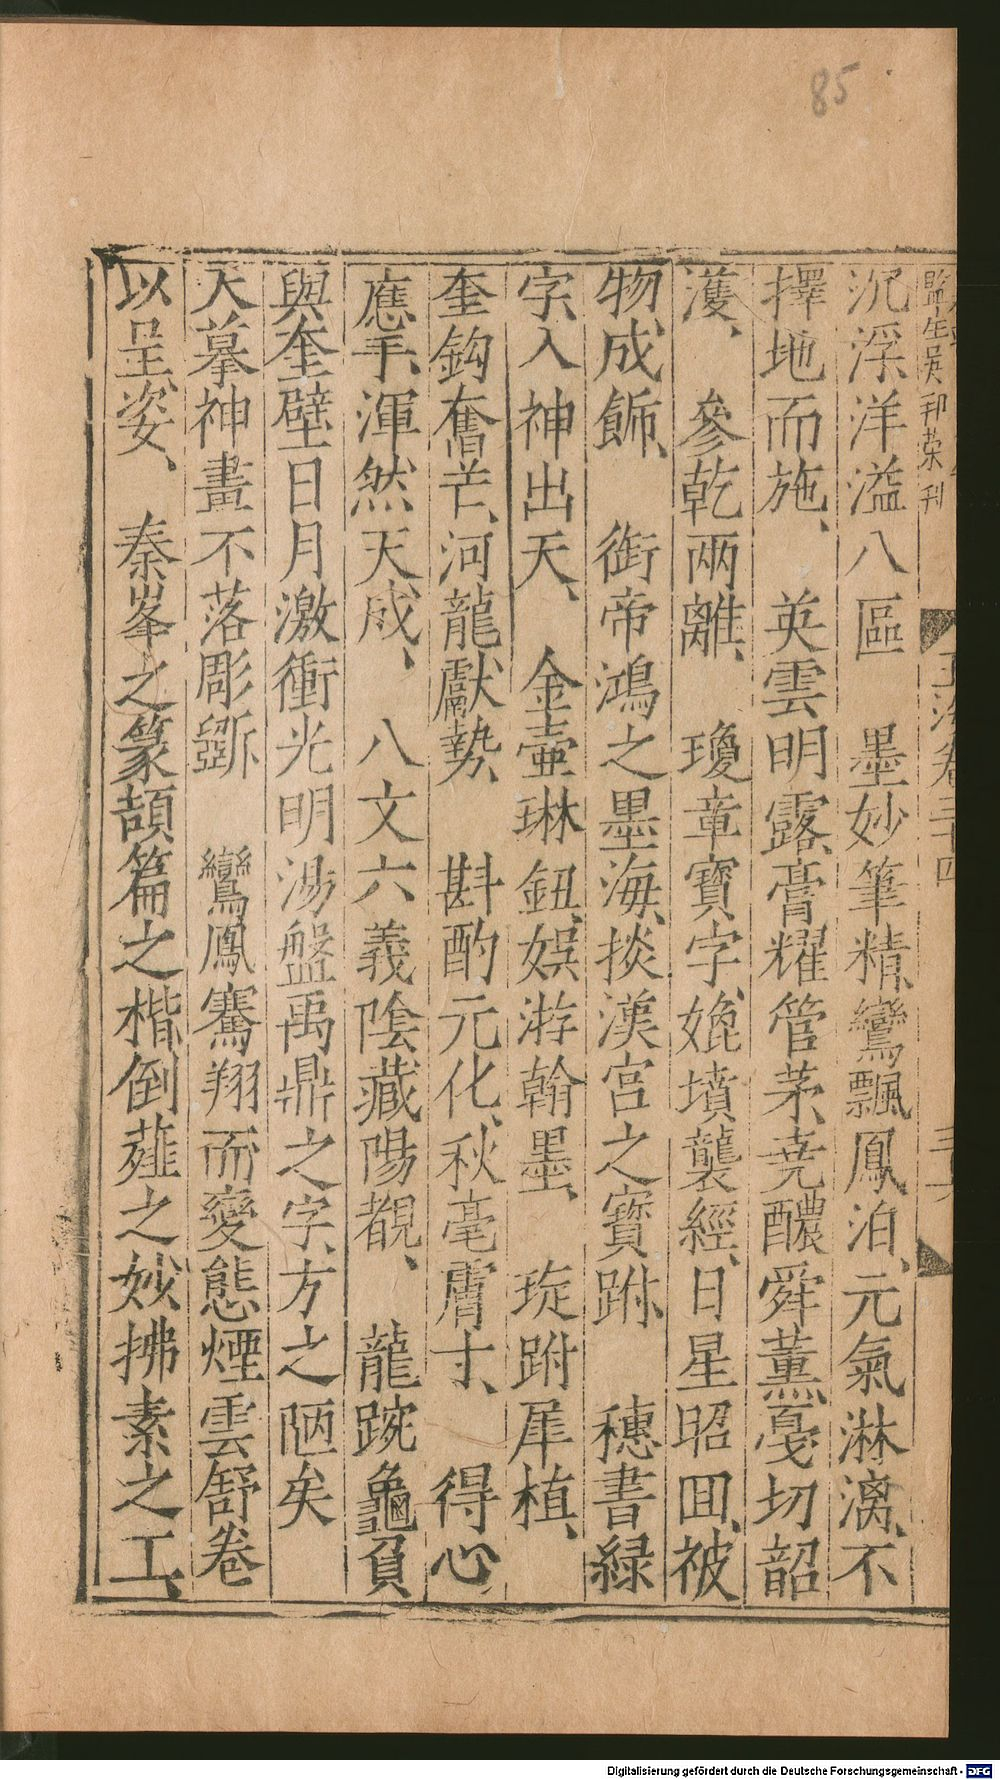 85
監生吳邦榮刊
玉海卷三十四
三十六
沉浮洋溢八區　墨妙筆精、鸞飄鳳泊、元氣淋漓、不
擇地而施、　英雲明露、膏耀管茅、堯醲舜薰、戞切韶
濩、　參乾兩離、　瓊章寶字、媲墳襲經、日星昭回、被
物成飾、　衘帝鴻之墨海、掞漢宮之寶跗、　穗書綠
字、入神出天、　金壷琳鈕、娯游翰墨、　琁跗犀植、
奎鈎奮芒、河龍獻勢、　斟酌元化、秋毫膚寸、　得心
應手、渾然天成、　八文六義陰藏陽覩、　龍蹏龜負
與奎壁日月激衝光明湯盤禹鼎之字、方之陋矣
天摹神畫不落彫斵　鸞鳳騫翔而變態煙雲舒卷
以呈姿、　秦峯之篆頡篇之楷倒薤之妙拂素之工、
Digitalisierung gefördert durch die Deutsche Forschungsgemeinschaft - DFG